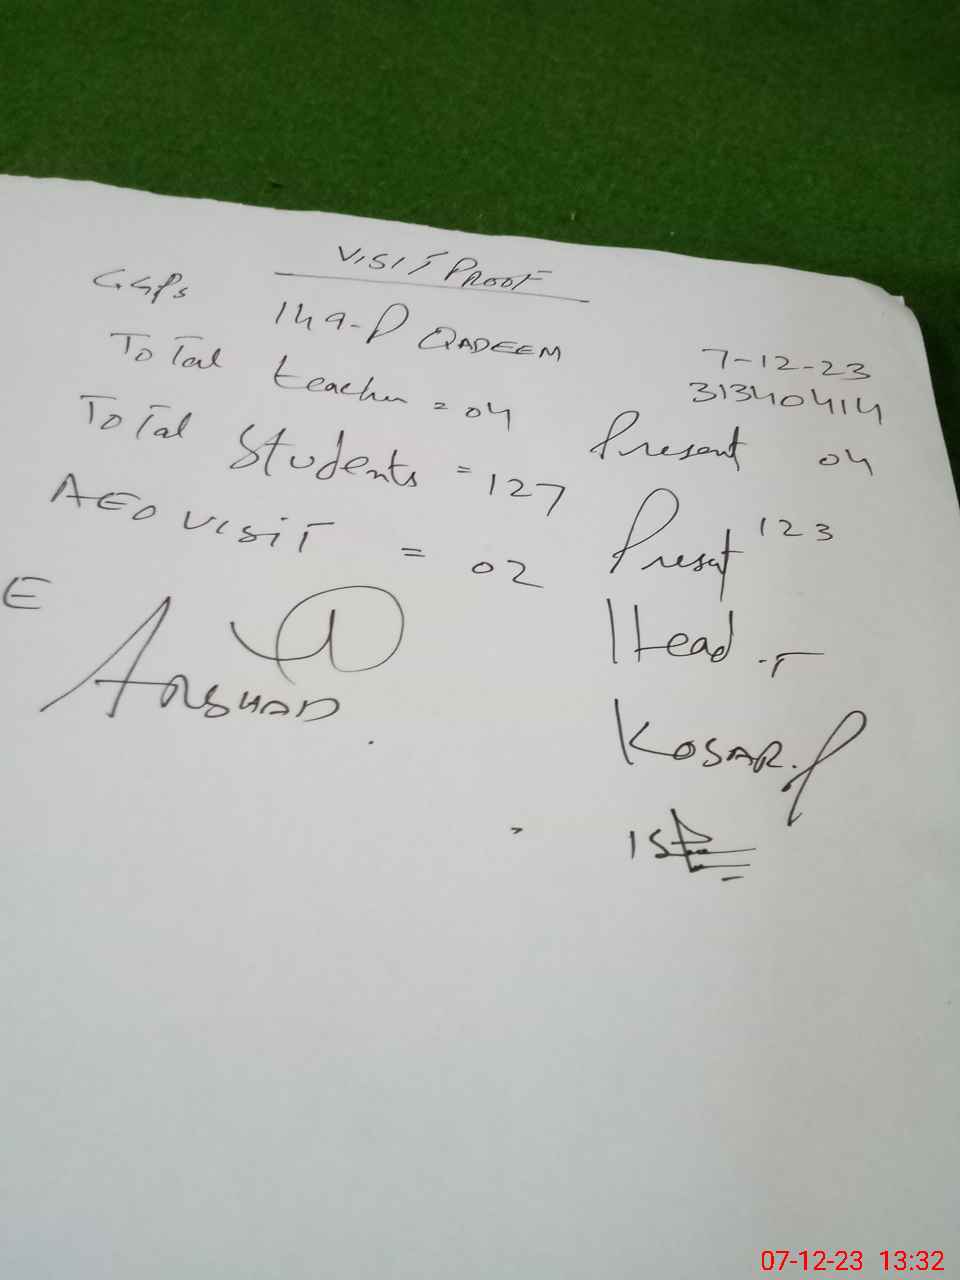 VISIT PROOF
GGPS 149-P QADEEM 7-12-23
31340414
Total teacher = 04 Present 04
Total Students = 127 Present 123
AEO VISIT = 02 Head.T
E
ARSHAD. KOSAR.P
07-12-23 13:32